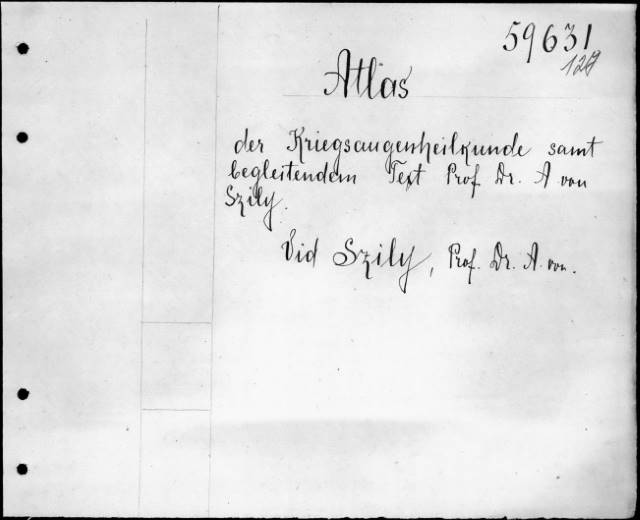 59631
129
Atlas
der Kriegsaugenheilkunde samt
begleitendem Text Prof Dr. A von
Szily.
Vid Szily, Prof. Dr. A. von.